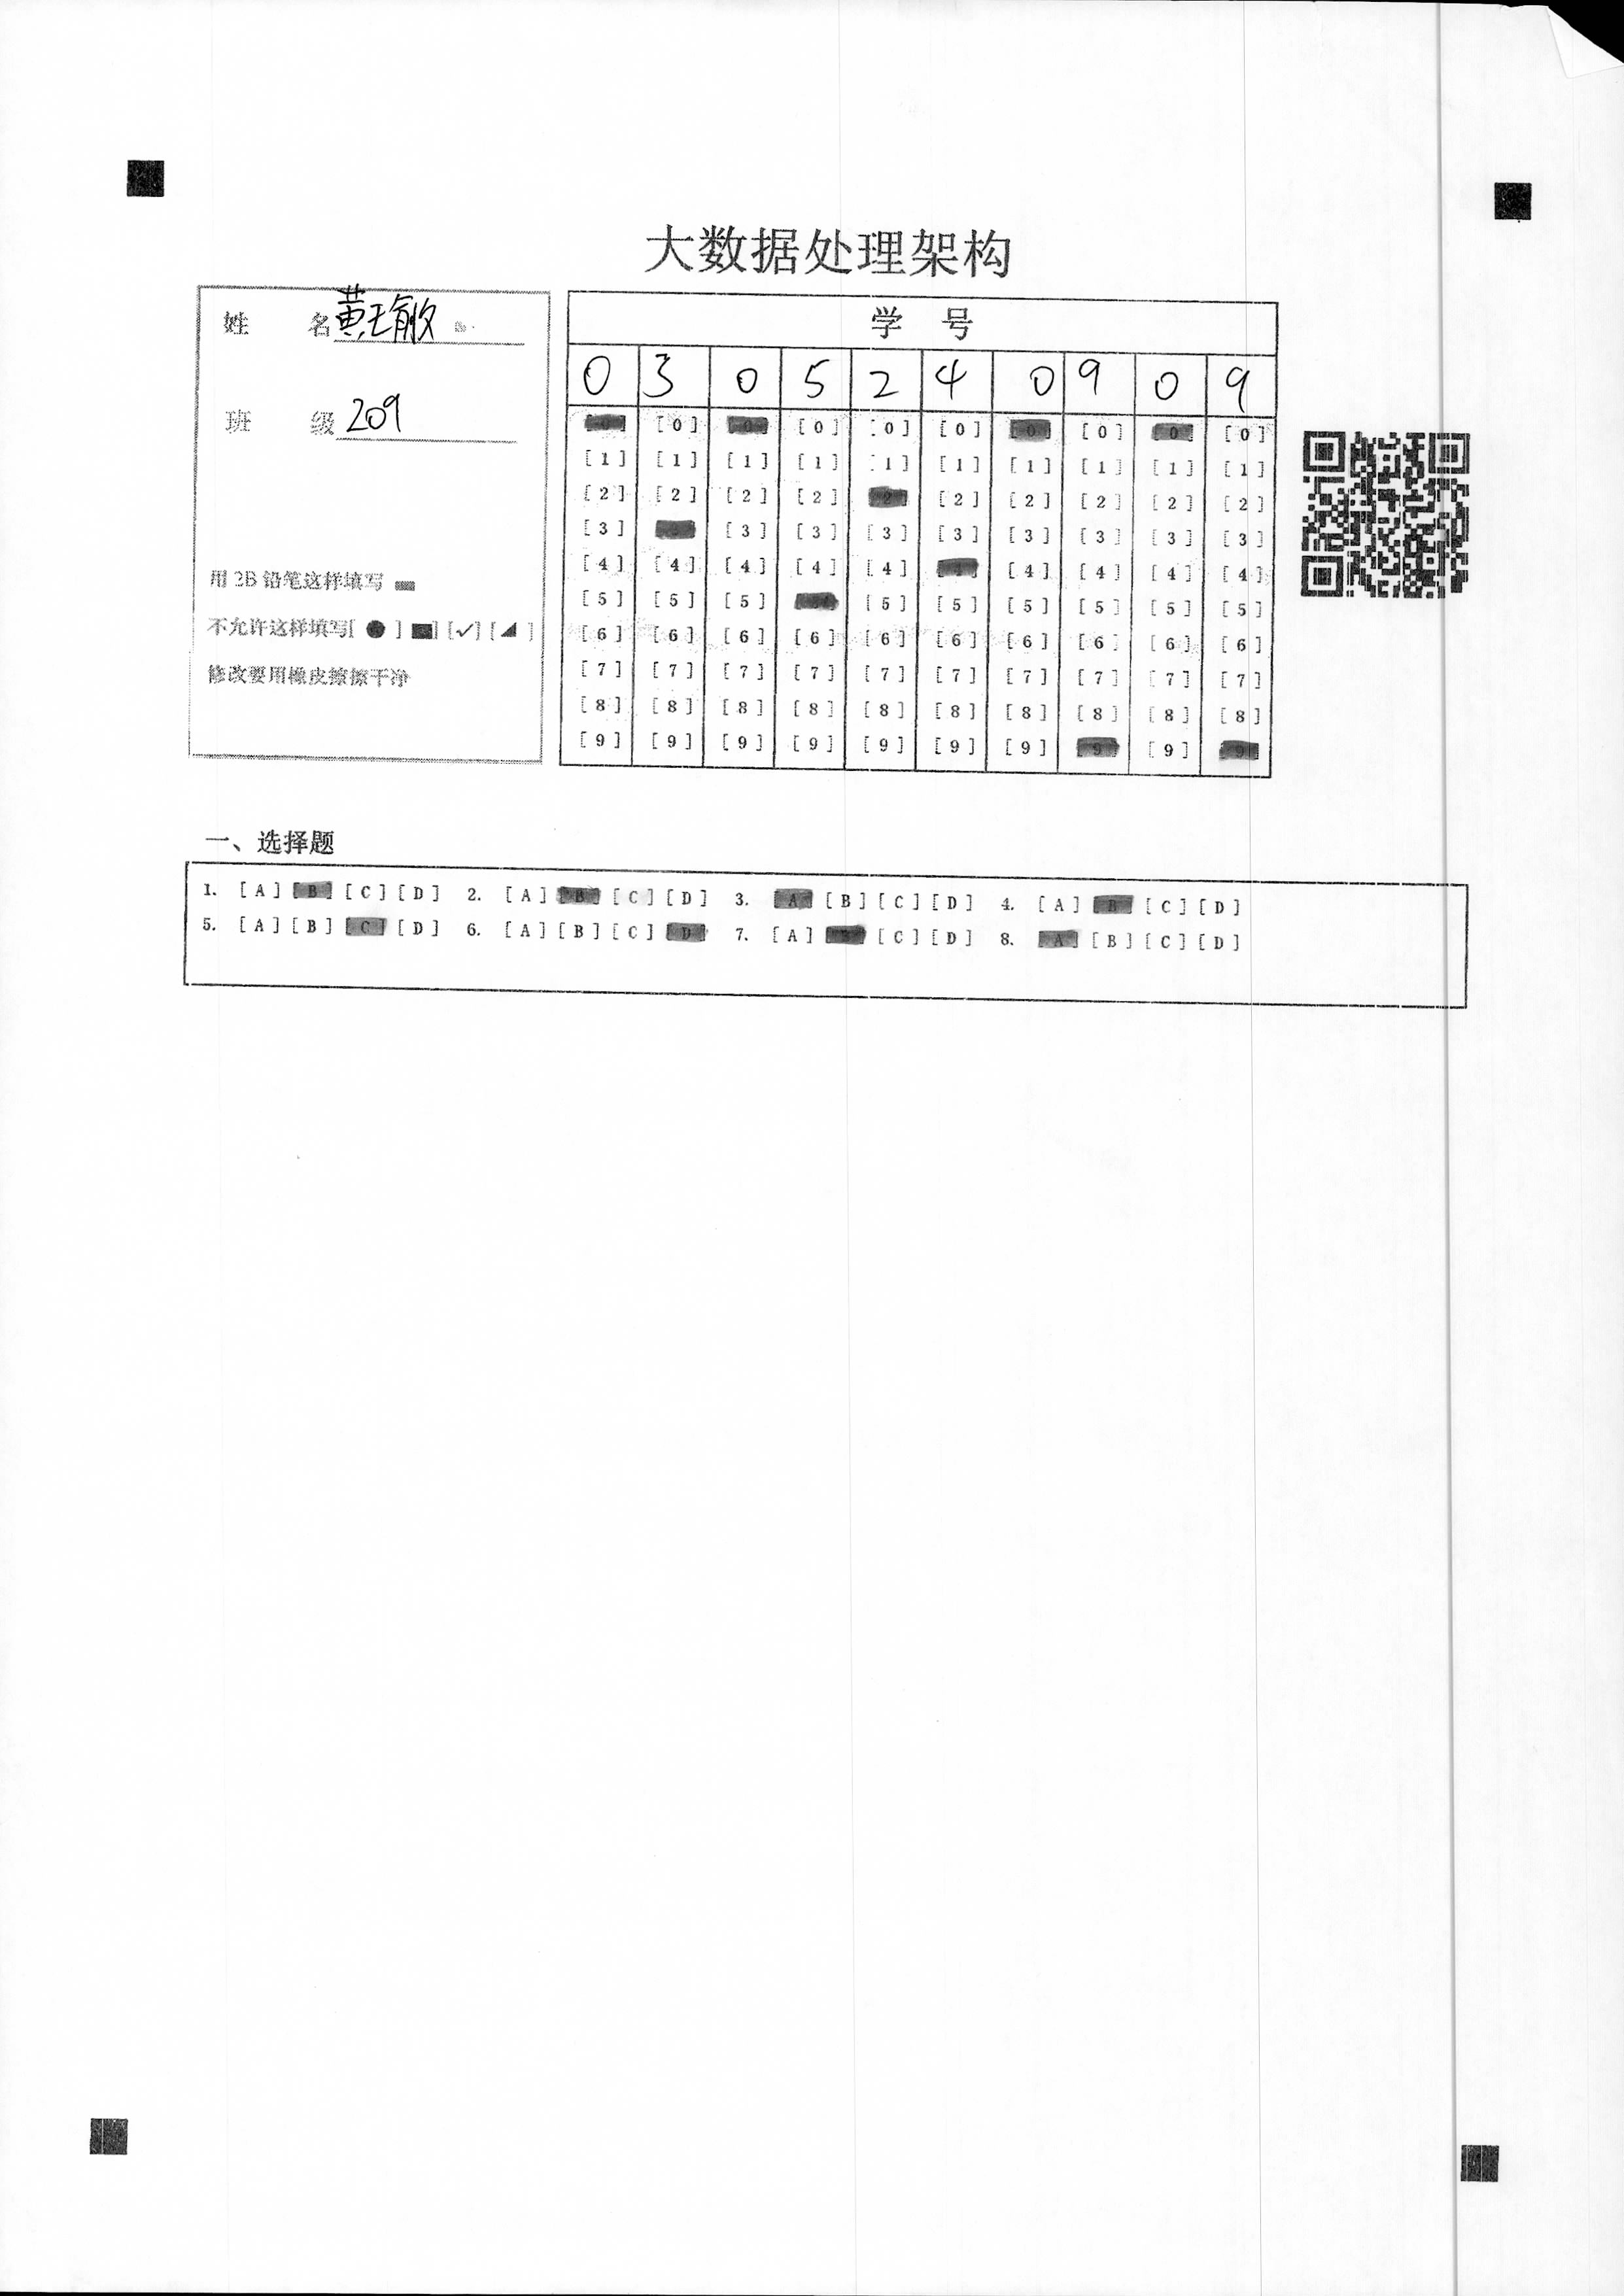 大数据处理架构
姓 名 黄毓敏
班 级 209
用 2B 铅笔这样填写
不允许这样填写[ ● ] ■] [✓] [◢ ]
修改要用橡皮擦擦干净
学 号
0 3 0 5 2 4 0 9 0 9
[0] [0] [0] [0] [0] [0] [0] [0] [0] [0]
[1] [1] [1] [1] [1] [1] [1] [1] [1] [1]
[2] [2] [2] [2] [2] [2] [2] [2] [2] [2]
[3] [3] [3] [3] [3] [3] [3] [3] [3]
[4] [4] [4] [4] [4] [4] [4] [4] [4] [4]
[5] [5] [5] [5] [5] [5] [5] [5] [5]
[6] [6] [6] [6] [6] [6] [6] [6] [6] [6]
[7] [7] [7] [7] [7] [7] [7] [7] [7] [7]
[8] [8] [8] [8] [8] [8] [8] [8] [8] [8]
[9] [9] [9] [9] [9] [9] [9] [9] [9] [9]
一、选择题
1. [A] [B] [C] [D] 2. [A] [B] [C] [D] 3. [A] [B] [C] [D] 4. [A] [B] [C] [D]
5. [A] [B] [C] [D] 6. [A] [B] [C] [D] 7. [A] [B] [C] [D] 8. [A] [B] [C] [D]